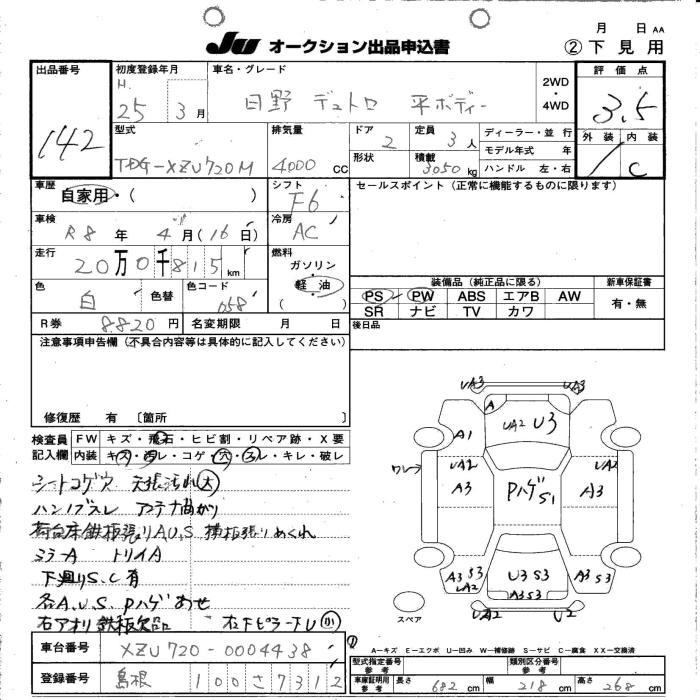 月 日 AA
JU オークション出品申込書
② 下見用
出品番号
142
初度登録年月
H.
25 3月
車名・グレード
日野 デュトロ 平ボディー
2WD
・
4WD
評価点
3.5
外装 内装
C
型式
TDG-XZU720M
排気量
4000 CC
ドア
2
定員
3人
形状
積載
3050 kg
ディーラー・並行
モデル年式 年
ハンドル 左・右
車歴
自家用・( )
シフト
F6
セールスポイント(正常に機能するものに限ります)
車検
R8 年 4月(16日)
冷房
AC
走行
20万0千815 km
燃料
ガソリン
・
軽油
( )
色
白
色替
色コード
058
装備品(純正品に限る)
新車保証書
PS PW ABS エアB AW
SR ナビ TV カワ
有・無
R券 8820円
名変期限 月 日
後日品
注意事項申告欄(不具合内容等は具体的に記入してください)
修復歴 有 〔箇所 〕
検査員
記入欄
FW キズ・飛石・ヒビ割・リペア跡・X要
内装 キズ・汚レ・コゲ・穴・スレ・キレ・破レ
シートコゲ穴 天張汚れ大
ハンドルスレ アンテナ曲がり
荷台床鉄板張りA.U.S 横板張りめくれ
ミラーA トリイA
下廻りS.C有
各A.U.S Pハゲ あせ
右アオリ鉄板欠品 右下ピラー下U小
UA3 UA3
A UA2 U3
A1
ワレ
UA2 A3
PハゲS1
UA2 A3
A3 S3 UA2
U3 S3
A3 S3
A3 S3
UA2 U2
スペア
A-キズ E-エクボ U-凹み W-補修跡 S-サビ C-腐食 XX-交換済
車台番号
XZU720-0004438
登録番号
島根 100さ7312
型式指定番号
参考
類別区分番号
参考
車庫証明用
参考
長さ 682 cm 幅 218 cm 高さ 268 cm